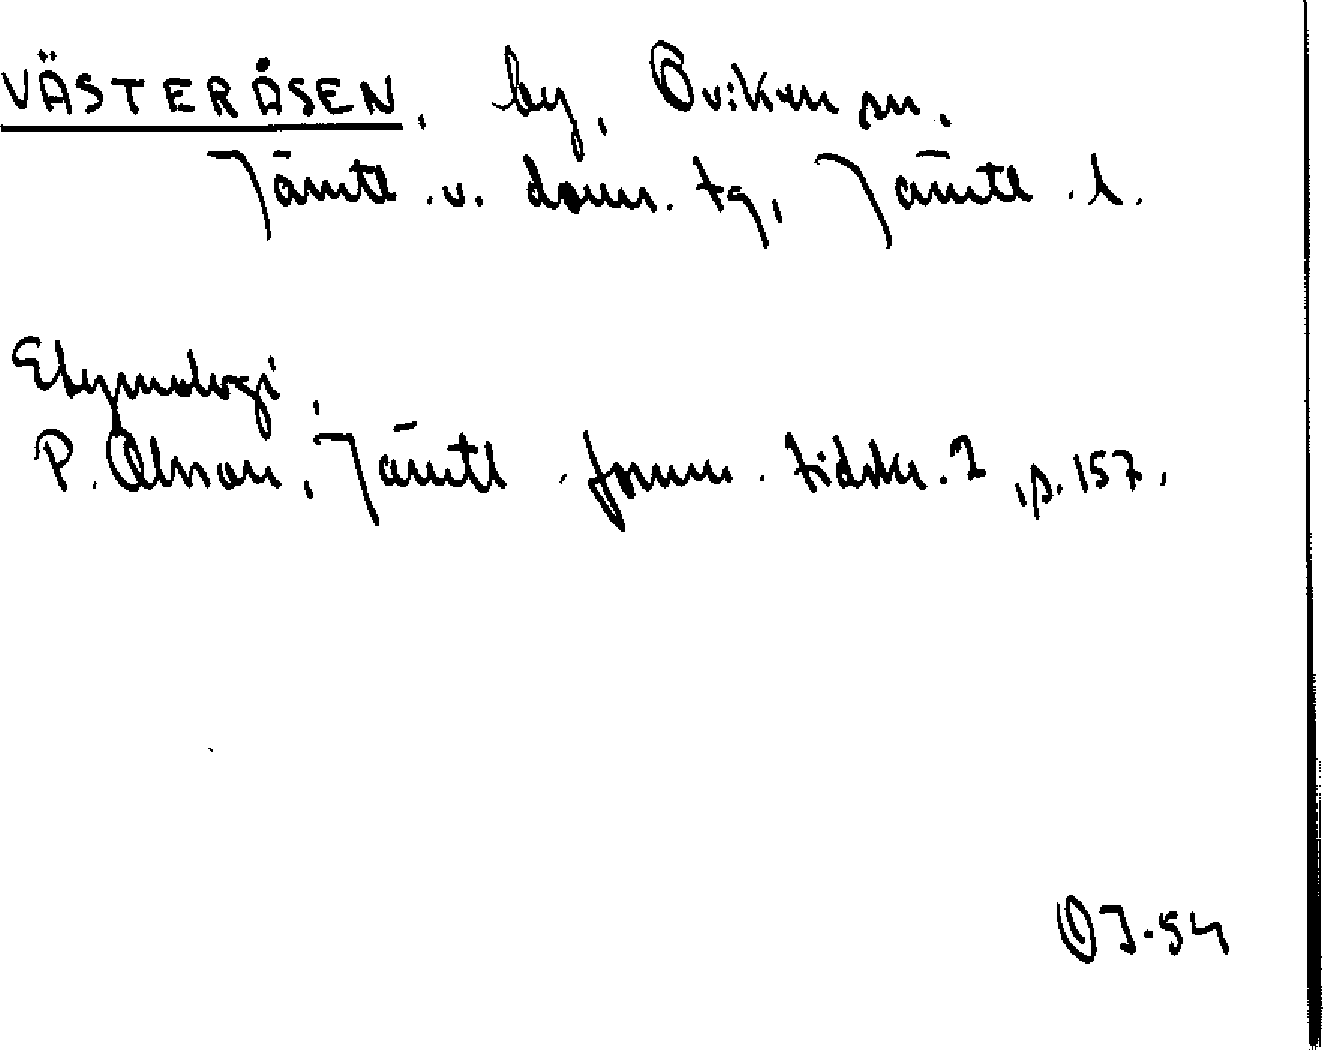 VÄSTERÅSEN, by, Oviken sn,
Jämtl. v. doms. tg, Jämtl. l.
Etymologi.
P. Olsson, Jämtl. fornm. tidskr. 2, p. 157.
OJ-54